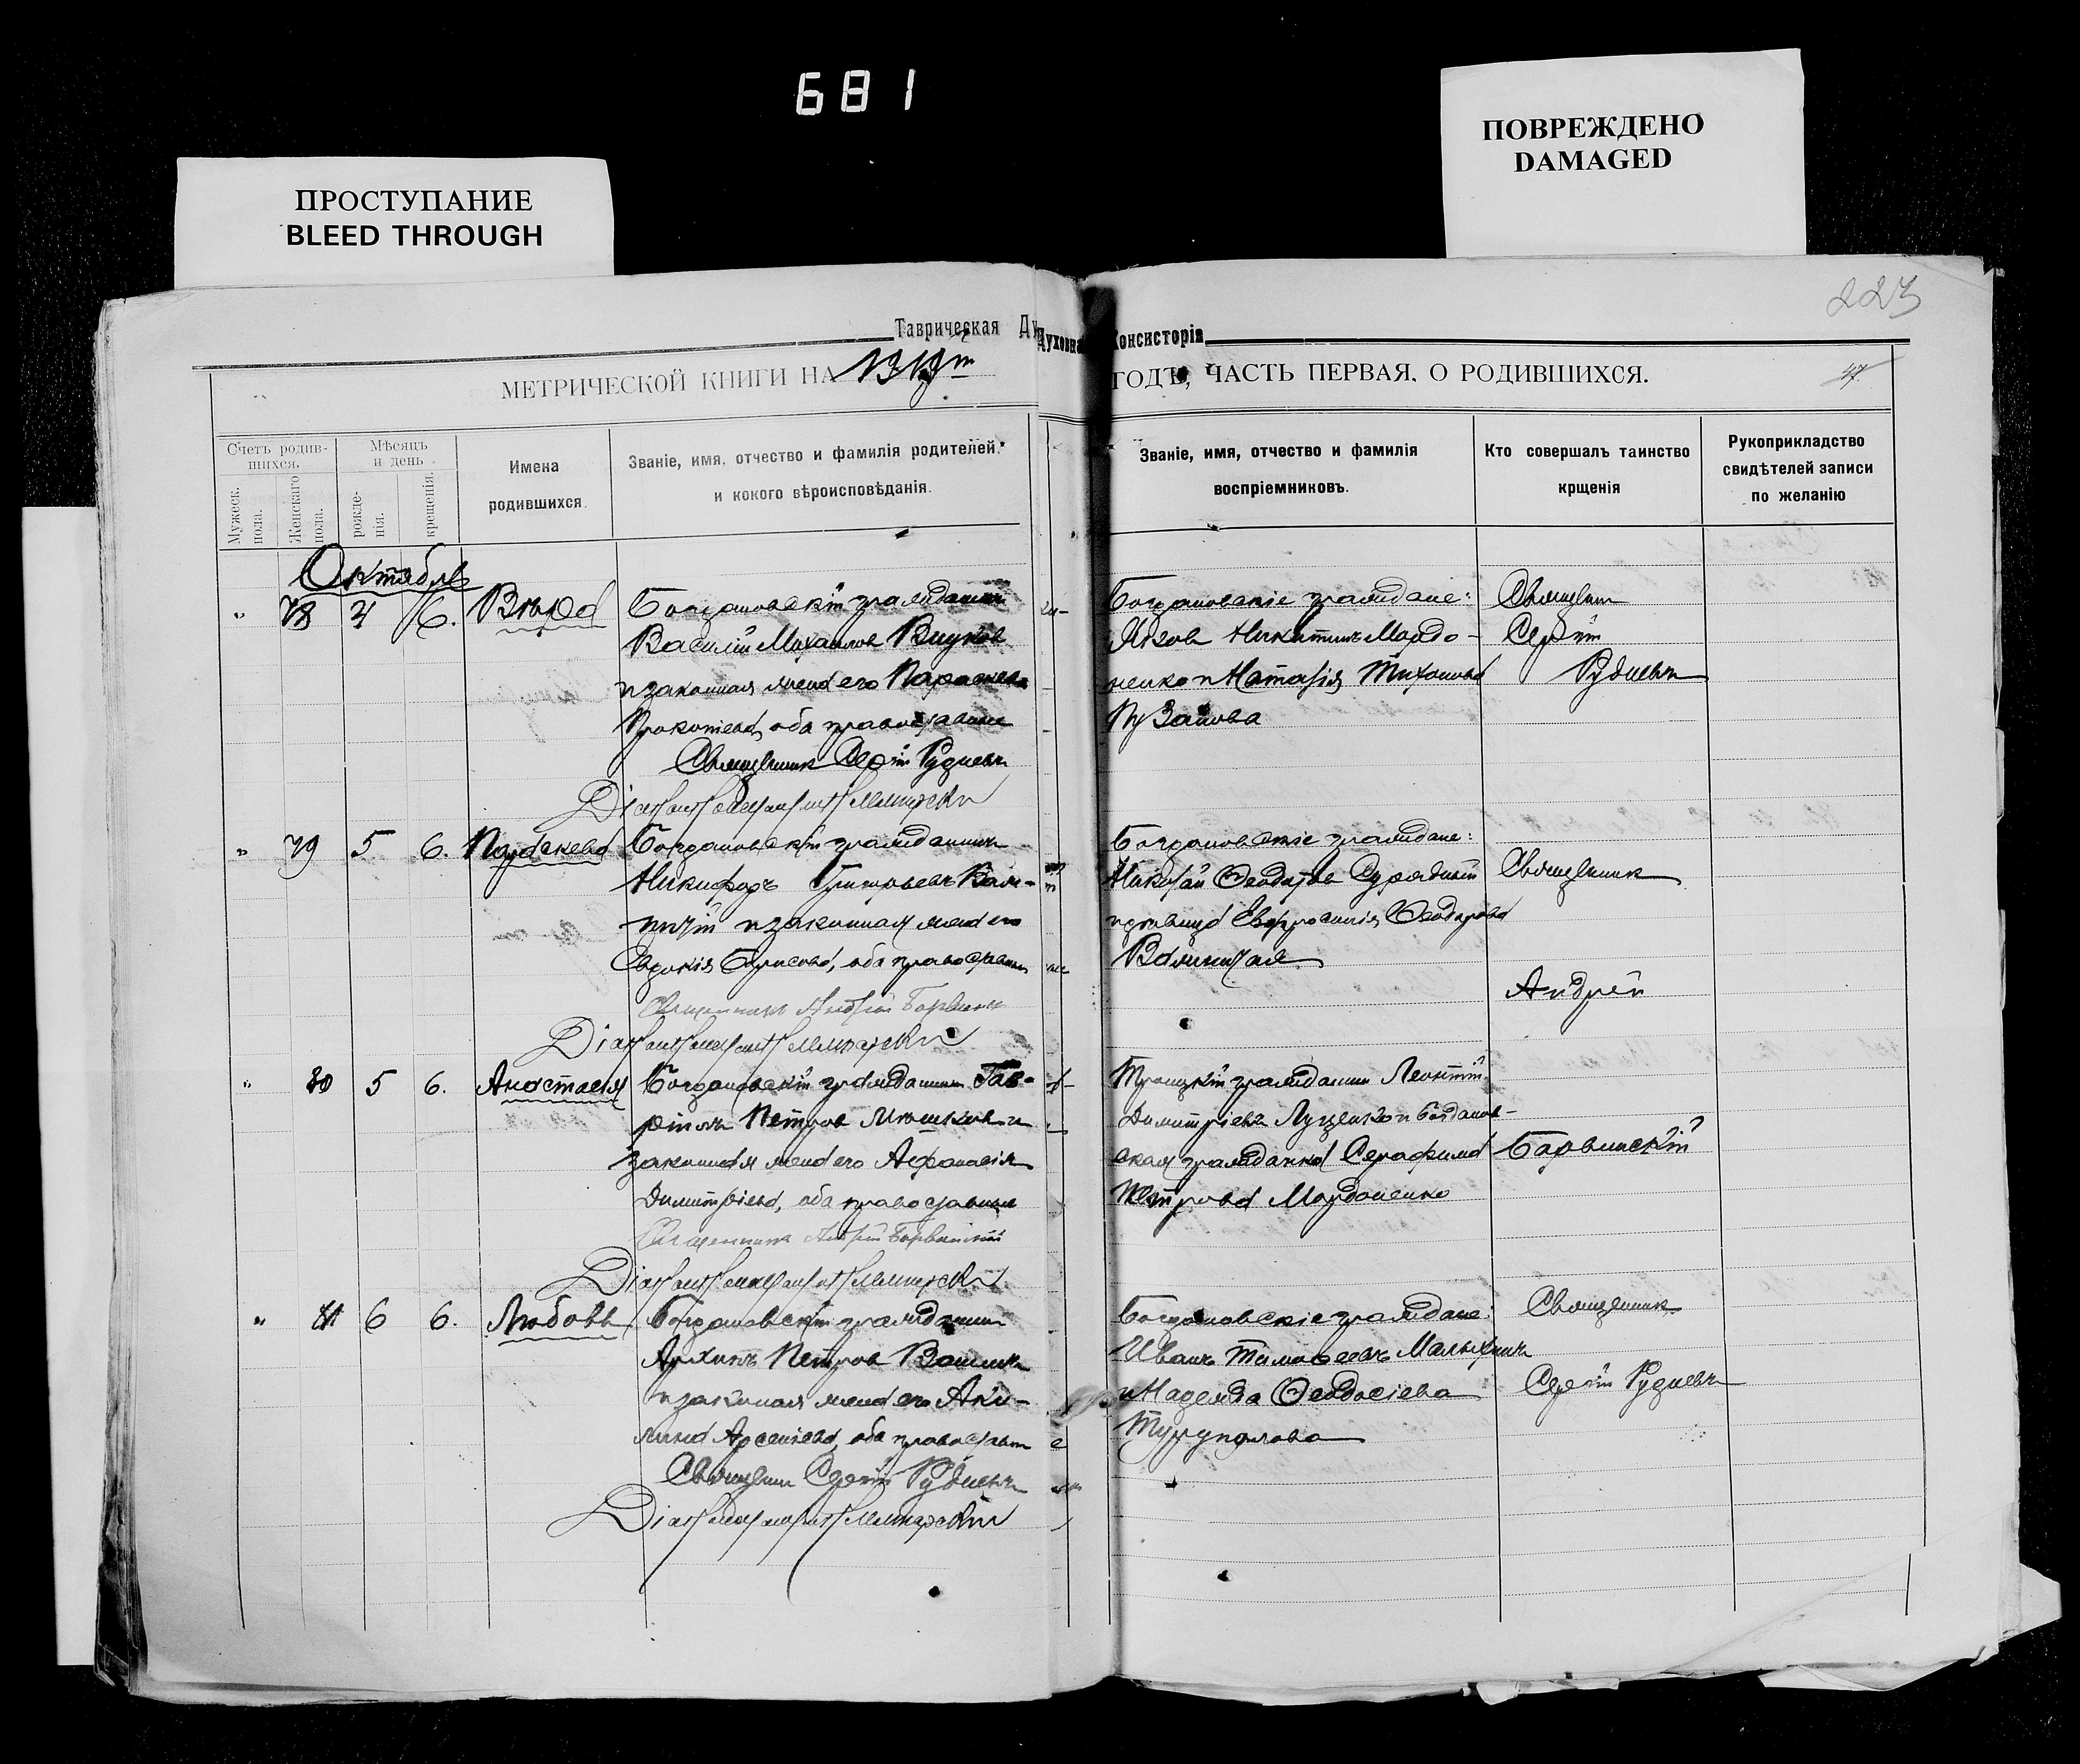 681
ПОВРЕЖДЕНО
DAMAGED
ПРОСТУПАНИЕ
BLEED THROUGH
223
Таврическая Духовна Консисторія
МЕТРИЧЕСКОЙ КНИГИ НА 1919 ГОДЪ, ЧАСТЬ ПЕРВАЯ. О РОДИВШИХСЯ.
47
Счетъ родив-
шихся.
Мужеск. пола.
Женскаго пола.
Мѣсяцъ
и день
рожде-
нія.
крещенія.
Имена
родившихся
Званіе, имя, отчество и фамилія родителей,
и кокого вѣроисповѣданія.
Званіе, имя, отчество и фамилія
воспріемниковъ.
Кто совершалъ таинство
крщенія
Рукоприкладство
свидѣтелей записи
по желанію
Октябрь
" 78 4 6. Вѣра
Богдановскій гражданинъ
Василій Михайлов
и законная жена его Параскева
Прокопіева, оба православные
Священник Сергій Рудневъ
Богдановскіе граждане:
Яков Никитинъ Мордо-
ненко и Наталія Тихонова
Пузанова
Священник
Сергій
Рудневъ
" 79 5 6. Параскева
Богдановскій гражданинъ
Никифоръ Григорьевъ Вали-
и законная жена его
Евдокія Борисова, оба православны
Священникъ Андрей
Богдановскіе граждане:
Николай
и девица Евфросинія Ѳеодорова
Священник
Андрей
Барвинскій
" 80 5 6. Анастасія
Богдановскій гражданинъ Гав-
ріилъ Петров Мюшков и
законная жена его Афанасія
Димитріева, оба православные
Священник Андрей Барвинскій
Троицкій гражданин Леонтій
Димитріевъ Луценко и Богданов-
ская гражданка Серафима
Петрова Мордоненко
" 81 6 6. Любовь
Богдановскій гражданин
Архипъ Петров
и законная жена его Аки-
лина Арсеніева, оба православн
Священник Сергій Рудневъ
Богдановскіе граждане:
Иванъ Тимофеевъ Малыхинъ
и Надежда Ѳеодосіева
Священник
Сергій Рудневъ